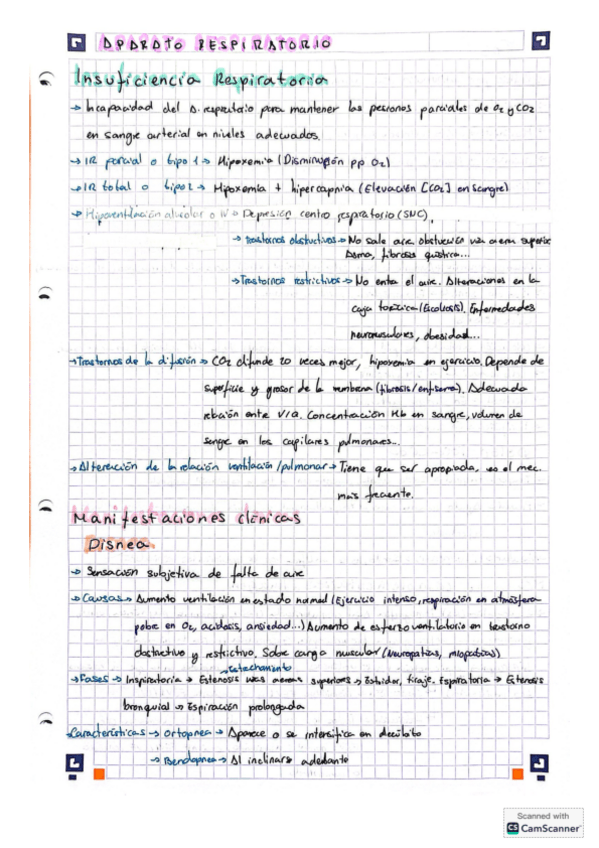 APARATO RESPIRATORIO
Insuficiencia Respiratoria
→ Incapacidad del A. respiratorio para mantener las presiones parciales de O₂ y CO₂
en sangre arterial en niveles adecuados.
→ IR parcial o tipo 1 → Hipoxemia (Disminución pp O₂)
→ IR total o tipo 2 → Hipoxemia + hipercapnia (Elevación [CO₂] en sangre)
→ Hipoventilación alveolar → Depresión centro respiratorio (SNC),
→ Trastornos obstructivos → No sale aire. obstrucción vía aerea superior
Asma, fibrosis quística...
→ Trastornos restrictivos → No entra el aire. Alteraciones en la
caja torácica (Escoliosis). Enfermedades
neuromusculares, obesidad...
→ Trastornos de la difusión → CO₂ difunde 20 veces mejor, hipoxemia en ejercicio. Depende de
superficie y grosor de la membrana (fibrosis/enfisema). Adecuada
relación entre V/Q. Concentración Hb en sangre, volumen de
sangre en los capilares pulmonares...
→ Alteración de la relación ventilación/pulmonar → Tiene que ser apropiada, es el mec.
más frecuente.
Manifestaciones clínicas
Disnea
→ Sensación subjetiva de falta de aire
→ Causas → Aumento ventilación en estado normal (Ejercicio intenso, respiración en atmósfera
pobre en O₂, acidosis, ansiedad...) Aumento de esfuerzo ventilatorio en trastorno
obstructivo y restrictivo. Sobre carga muscular (Neuropatías, miopatías)
→ Estrechamiento
→ Fases → Inspiratoria → Estenosis vías aereas superiores → Estridor, tiraje. Espiratoria → Estenosis
bronquial → Espiración prolongada
Características → Ortopnea → Aparece o se intensifica en decúbito
→ Bendopnea → Al inclinarse adelante
Scanned with
CS CamScanner